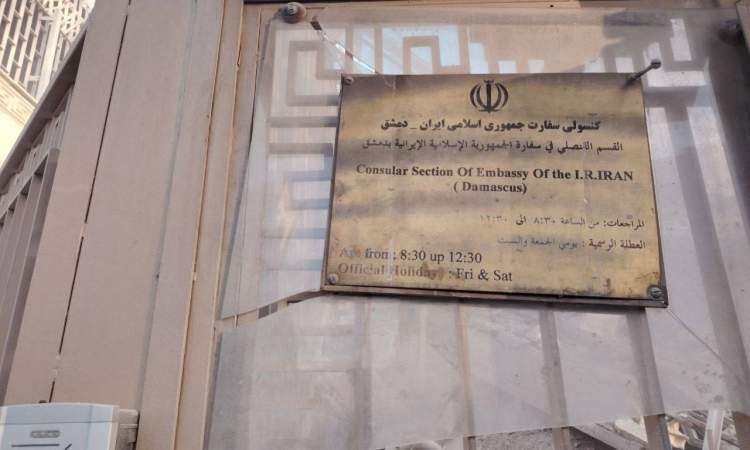 کنسولی سفارت جمهوری اسلامی ایران _ دمشق
القسم القنصلي في سفارة الجمهورية الإسلامية الإيرانية بدمشق
Consular Section Of Embassy Of the I.R.IRAN
( Damascus)
المراجعات: من الساعة ٨:٣٠ الى ١٢:٣٠
العطلة الرسمية : يومي الجمعة والسبت
from : 8:30 up 12:30
Official Holiday : Fri & Sat